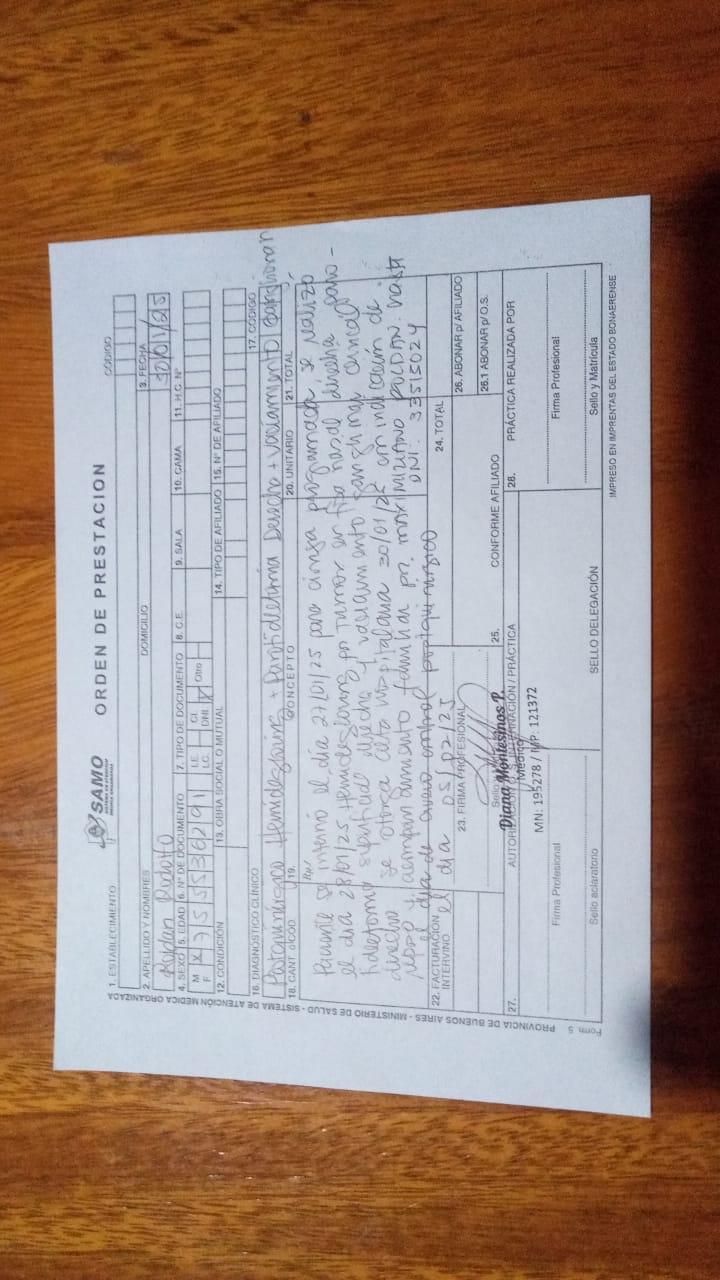 SAMO
ORDEN DE PRESTACION
CODIGO
1. ESTABLECIMIENTO
DOMICILIO
3. FECHA
30/01/25
2. APELLIDO Y NOMBRES
Roldan
4. SEXO 5. EDAD 6. Nº DE DOCUMENTO 7. TIPO DE DOCUMENTO 8. C.E. 9. SALA 10. CAMA 11. H.C. Nº
M X 75
F
L.E. C.I. Otro
L.C. DNI X
12. CONDICIÓN 13. OBRA SOCIAL O MUTUAL 14. TIPO DE AFILIADO 15. Nº DE AFILIADO
16. DIAGNOSTICO CLÍNICO 17. CÓDIGO
Postquirurgico + Derecha + Vaciamiento ganglionar
18. CANT 19. CONCEPTO 20. UNITARIO 21. TOTAL
Paciente se interno el día 27/01/25 para cirugía programada se realizo
el día 28/01/25 por tumor en fosa nasal derecha
derecha y vaciamiento ganglionar cervical
derecho se otorga alta hospitalaria 30/01/25 con indicación de
reposo y acompañamiento familiar por MAXIMILIANO ROLDAN. hasta
DNI. 33515024
el dia de nuevo control postquirurgico
el dia 05/02/25
22. FACTURACIÓN INTERVINO
23. FIRMA PROFESIONAL
24. TOTAL
26. ABONAR p/ AFILIADO
26.1 ABONAR p/ O.S.
25. CONFORME AFILIADO
Diana Montesinos P.
Médico
MN: 195278 / MP: 121372
27. AUTORIZACIÓN O.S. INTERNACIÓN / PRÁCTICA
28. PRÁCTICA REALIZADA POR
Firma Profesional
Firma Profesional
Sello aclaratorio
SELLO DELEGACIÓN
Sello y Matrícula
IMPRESO EN IMPRENTAS DEL ESTADO BONAERENSE
Form. 5 PROVINCIA DE BUENOS AIRES - MINISTERIO DE SALUD - SISTEMA DE ATENCIÓN MEDICA ORGANIZADA